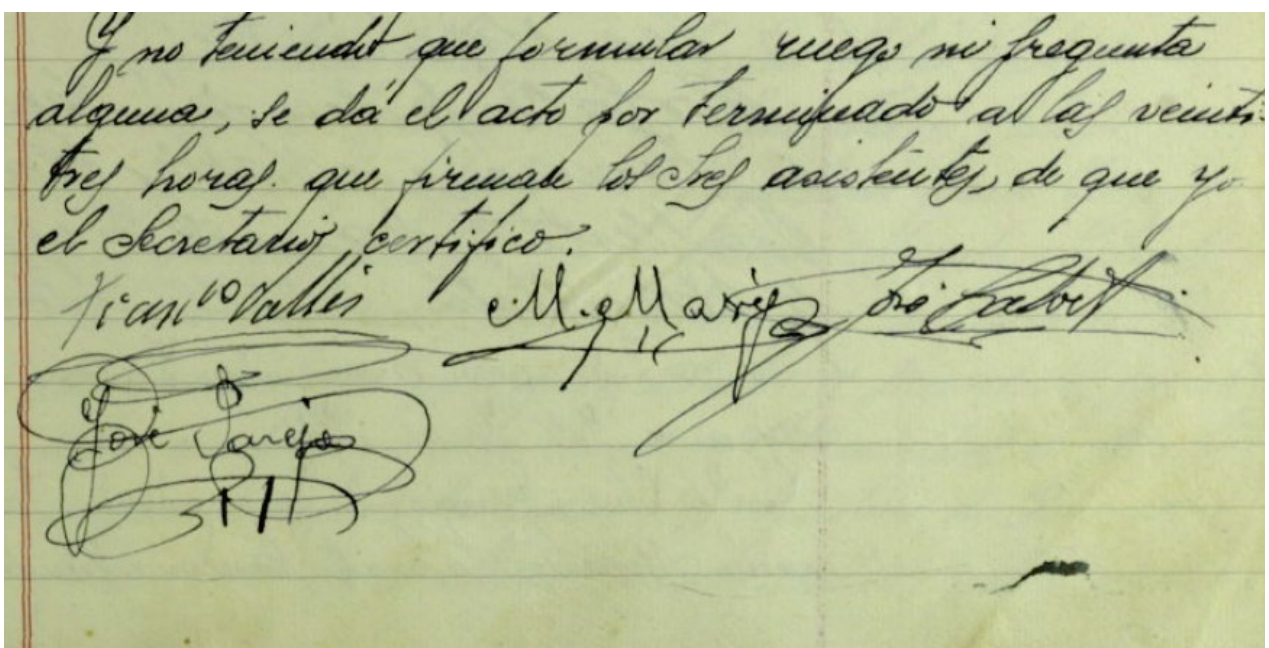 Y no teniendo que formular ruego ni pregunta
alguna, se dá el acto por terminado a las veinti-
tres horas. que firman los Sres asistentes, de que yo
el Secretario, certifico.
Franco Vallés M. Marí José Calbet
José Pareja